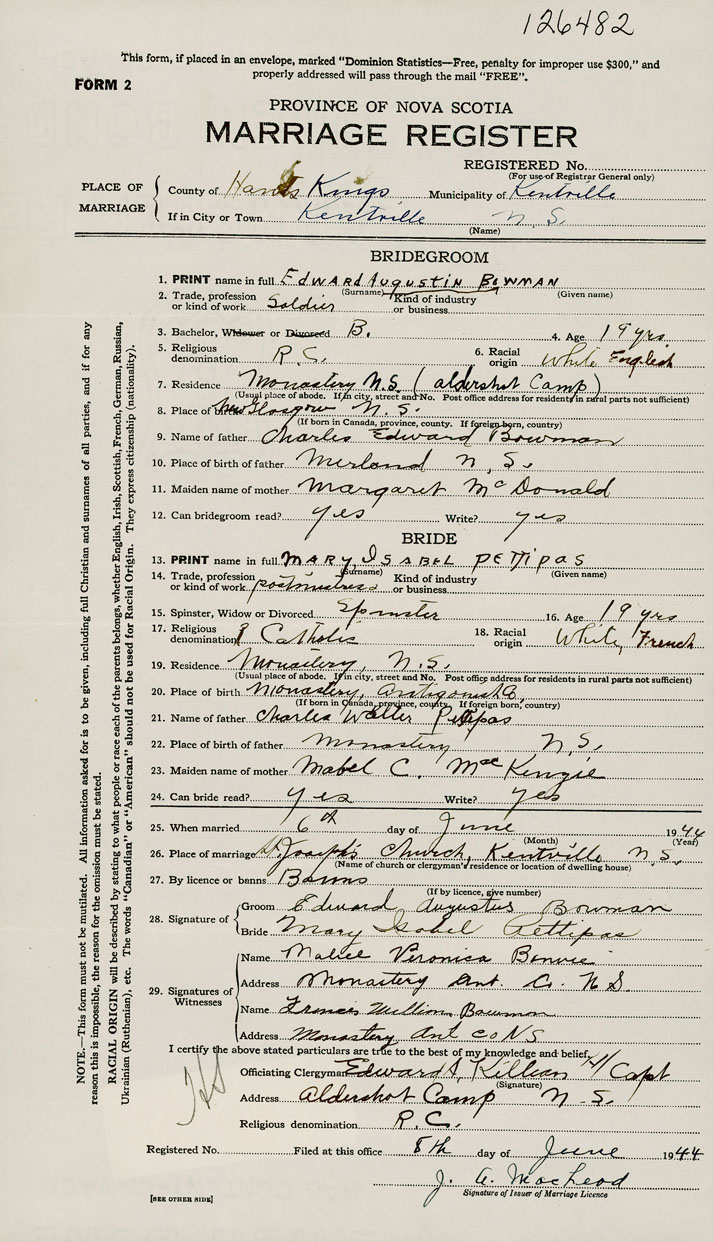 126482
This form, if placed in an envelope, marked "Dominion Statistics—Free, penalty for improper use $300," and
properly addressed will pass through the mail "FREE".
FORM 2
PROVINCE OF NOVA SCOTIA
MARRIAGE REGISTER
REGISTERED No.
(For use of Registrar General only)
PLACE OF MARRIAGE
County of Hants Kings Municipality of Kentville
If in City or Town Kentville N.S.
(Name)
BRIDEGROOM
1. PRINT name in full EDWARD AUGUSTIN BOWMAN
(Surname) (Given name)
2. Trade, profession or kind of work Soldier Kind of industry or business
3. Bachelor, Widower or Divorced B. 4. Age 19 yrs.
5. Religious denomination R.C. 6. Racial origin White English
7. Residence Monastery N.S. (Aldershot Camp)
(Usual place of abode. If in city, street and No. Post office address for residents in rural parts not sufficient)
8. Place of birth New Glasgow N.S.
(If born in Canada, province, county. If foreign born, country)
9. Name of father Charles Edward Bowman
10. Place of birth of father Merland N.S.
11. Maiden name of mother Margaret McDonald
12. Can bridegroom read? yes Write? yes
BRIDE
13. PRINT name in full MARY ISABEL PETTIPAS
(Surname) (Given name)
14. Trade, profession or kind of work postmistress Kind of industry or business
15. Spinster, Widow or Divorced Spinster 16. Age 19 yrs
17. Religious denomination R Catholic 18. Racial origin White, French
19. Residence Monastery, N.S.
(Usual place of abode. If in city, street and No. Post office address for residents in rural parts not sufficient)
20. Place of birth Monastery, Antigonish Co.
(If born in Canada, province, county. If foreign born, country)
21. Name of father Charles Walter Pettipas
22. Place of birth of father Monastery N.S.
23. Maiden name of mother Mabel C. MacKenzie
24. Can bride read? yes Write? yes
25. When married 6th day of June 1944
(Month) (Year)
26. Place of marriage St Joseph's Church, Kentville N.S.
(Name of church or clergyman's residence or location of dwelling house)
27. By licence or banns Banns
(If by licence, give number)
28. Signature of
Groom Edward Augustus Bowman
Bride Mary Isabel Pettipas
29. Signatures of Witnesses
Name Veronica
Address Monastery Ant. Co. N S
Name Francis William Bowman
Address Monastery Ant Co NS
I certify the above stated particulars are true to the best of my knowledge and belief.
Officiating Clergyman Edward A. Killian H/Capt
(Signature)
Address Aldershot Camp N.S.
Religious denomination R.C.
Registered No. Filed at this office 8th day of June 1944
J. A. MacLeod
Signature of Issuer of Marriage Licence
[SEE OTHER SIDE]
NOTE.—This form must not be mutilated. All information asked for is to be given, including full Christian and surnames of all parties, and if for any
reason this is impossible, the reason for the omission must be stated.
RACIAL ORIGIN will be described by stating to what people or race each of the parents belongs, whether English, Irish, Scottish, French, German, Russian,
Ukrainian (Ruthenian), etc. The words "Canadian" or "American" should not be used for Racial Origin. They express citizenship (nationality).